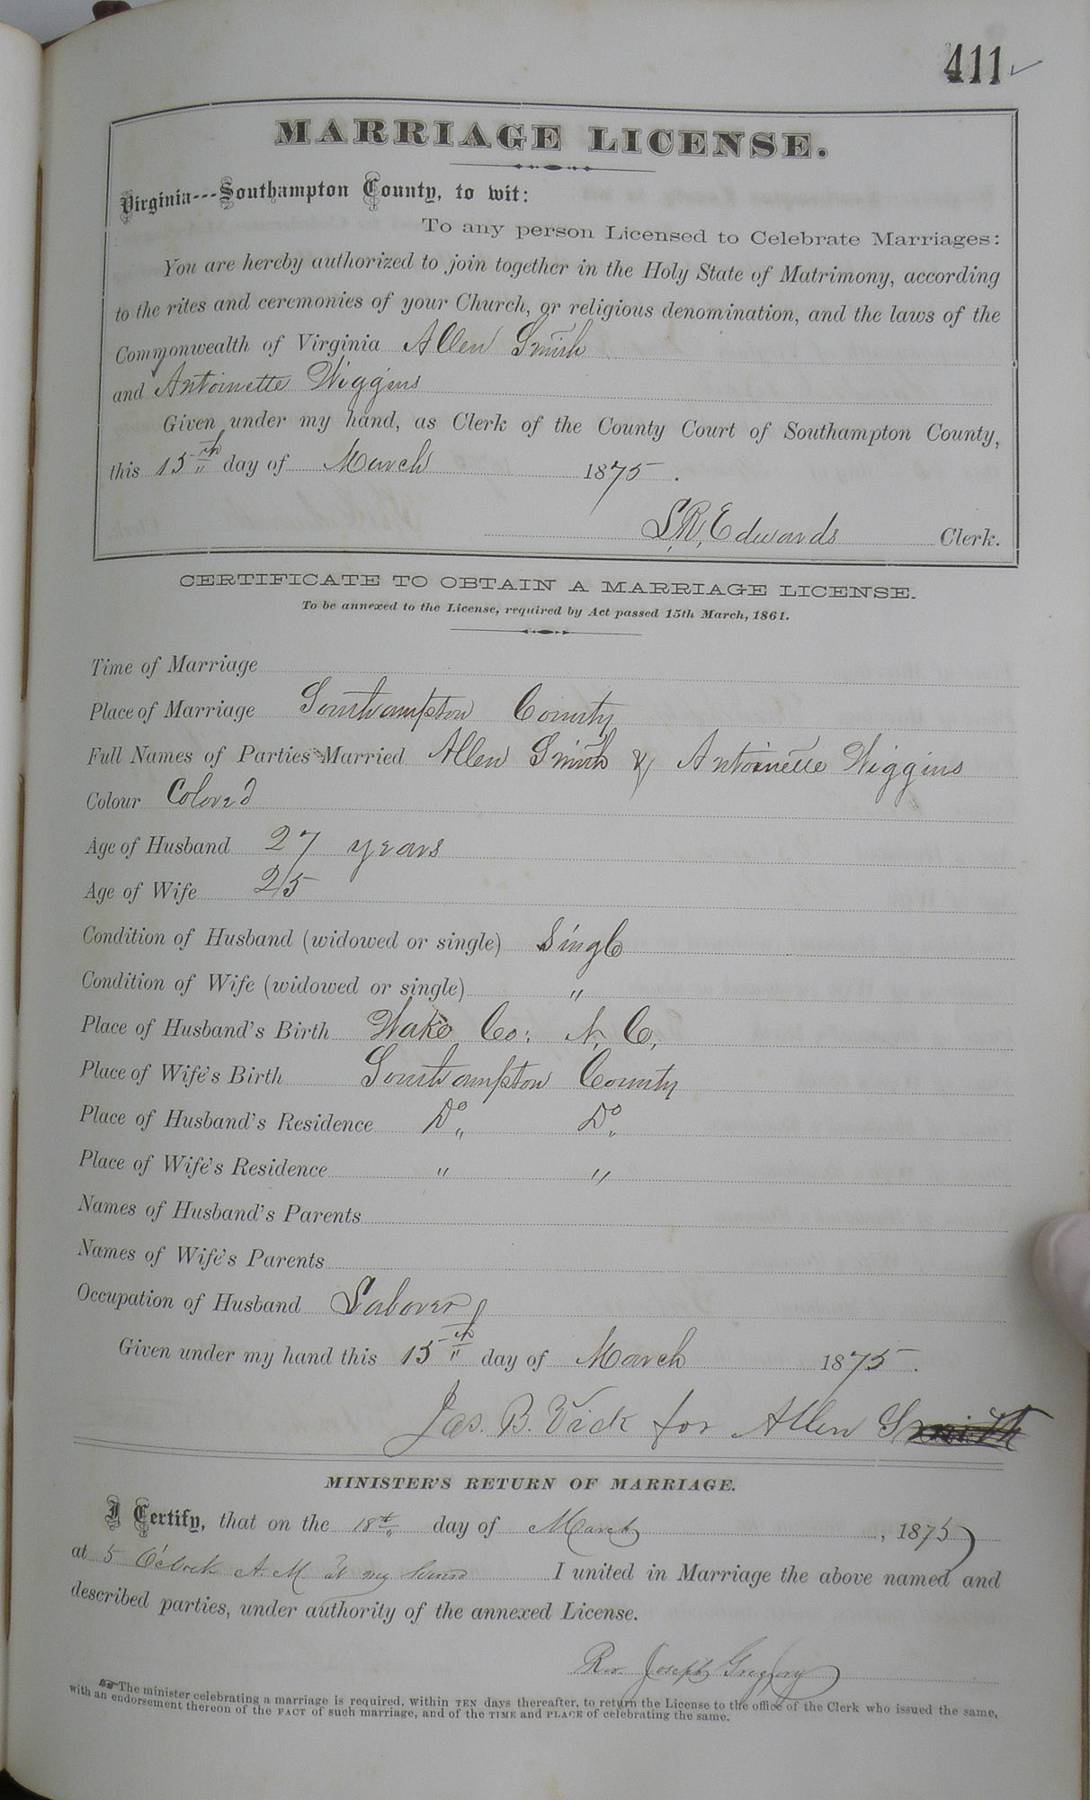 411
MARRIAGE LICENSE.
Virginia---Southampton County, to wit:
To any person Licensed to Celebrate Marriages:
You are hereby authorized to join together in the Holy State of Matrimony, according
to the rites and ceremonies of your Church, or religious denomination, and the laws of the
Commonwealth of Virginia Allen Smith
and Antoinette Wiggins
Given under my hand, as Clerk of the County Court of Southampton County,
this 15th day of March 1875.
L.R. Edwards Clerk.
CERTIFICATE TO OBTAIN A MARRIAGE LICENSE.
To be annexed to the License, required by Act passed 15th March, 1861.
Time of Marriage
Place of Marriage Southampton County
Full Names of Parties Married Allen Smith & Antoinette Wiggins
Colour Colored
Age of Husband 27 years
Age of Wife 25
Condition of Husband (widowed or single) Single
Condition of Wife (widowed or single) "
Place of Husband's Birth Wake Co: N.C,
Place of Wife's Birth Southampton County
Place of Husband's Residence Do Do
Place of Wife's Residence " "
Names of Husband's Parents
Names of Wife's Parents
Occupation of Husband Laborer
Given under my hand this 15th day of March 1875.
Jas. B. Vick for Allen Smith
MINISTER'S RETURN OF MARRIAGE.
I Certify, that on the 18th day of March, 1875
at 5 O'clock A. M at my house I united in Marriage the above named and
described parties, under authority of the annexed License.
Rev. Joseph Greggory
The minister celebrating a marriage is required, within TEN days thereafter, to return the License to the office of the Clerk who issued the same,
with an endorsement thereon of the FACT of such marriage, and of the TIME and PLACE of celebrating the same.